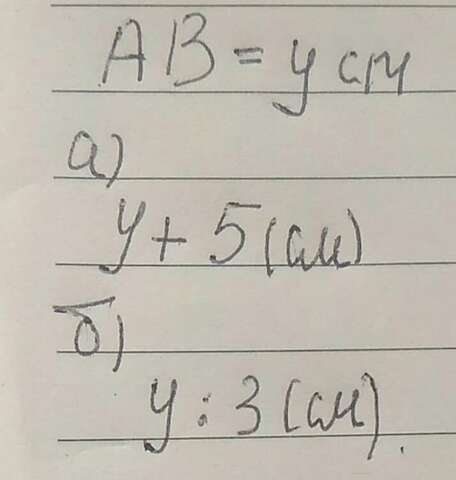 AB = y см
а)
y + 5 (см)
б)
y : 3 (см).